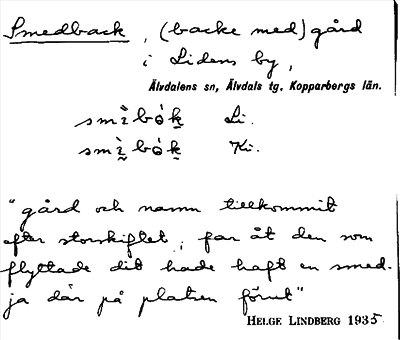 Smedback, (backe med) gård
i Lidens by,
Älvdalens sn, Älvdals tg, Kopparbergs län.
smìbók Li.
smìbók Ki.
"gård och namn tillkommit
efter storskiftet, far åt den som
flyttade dit hade haft en smed-
ja där på platsen förut"
HELGE LINDBERG 1935